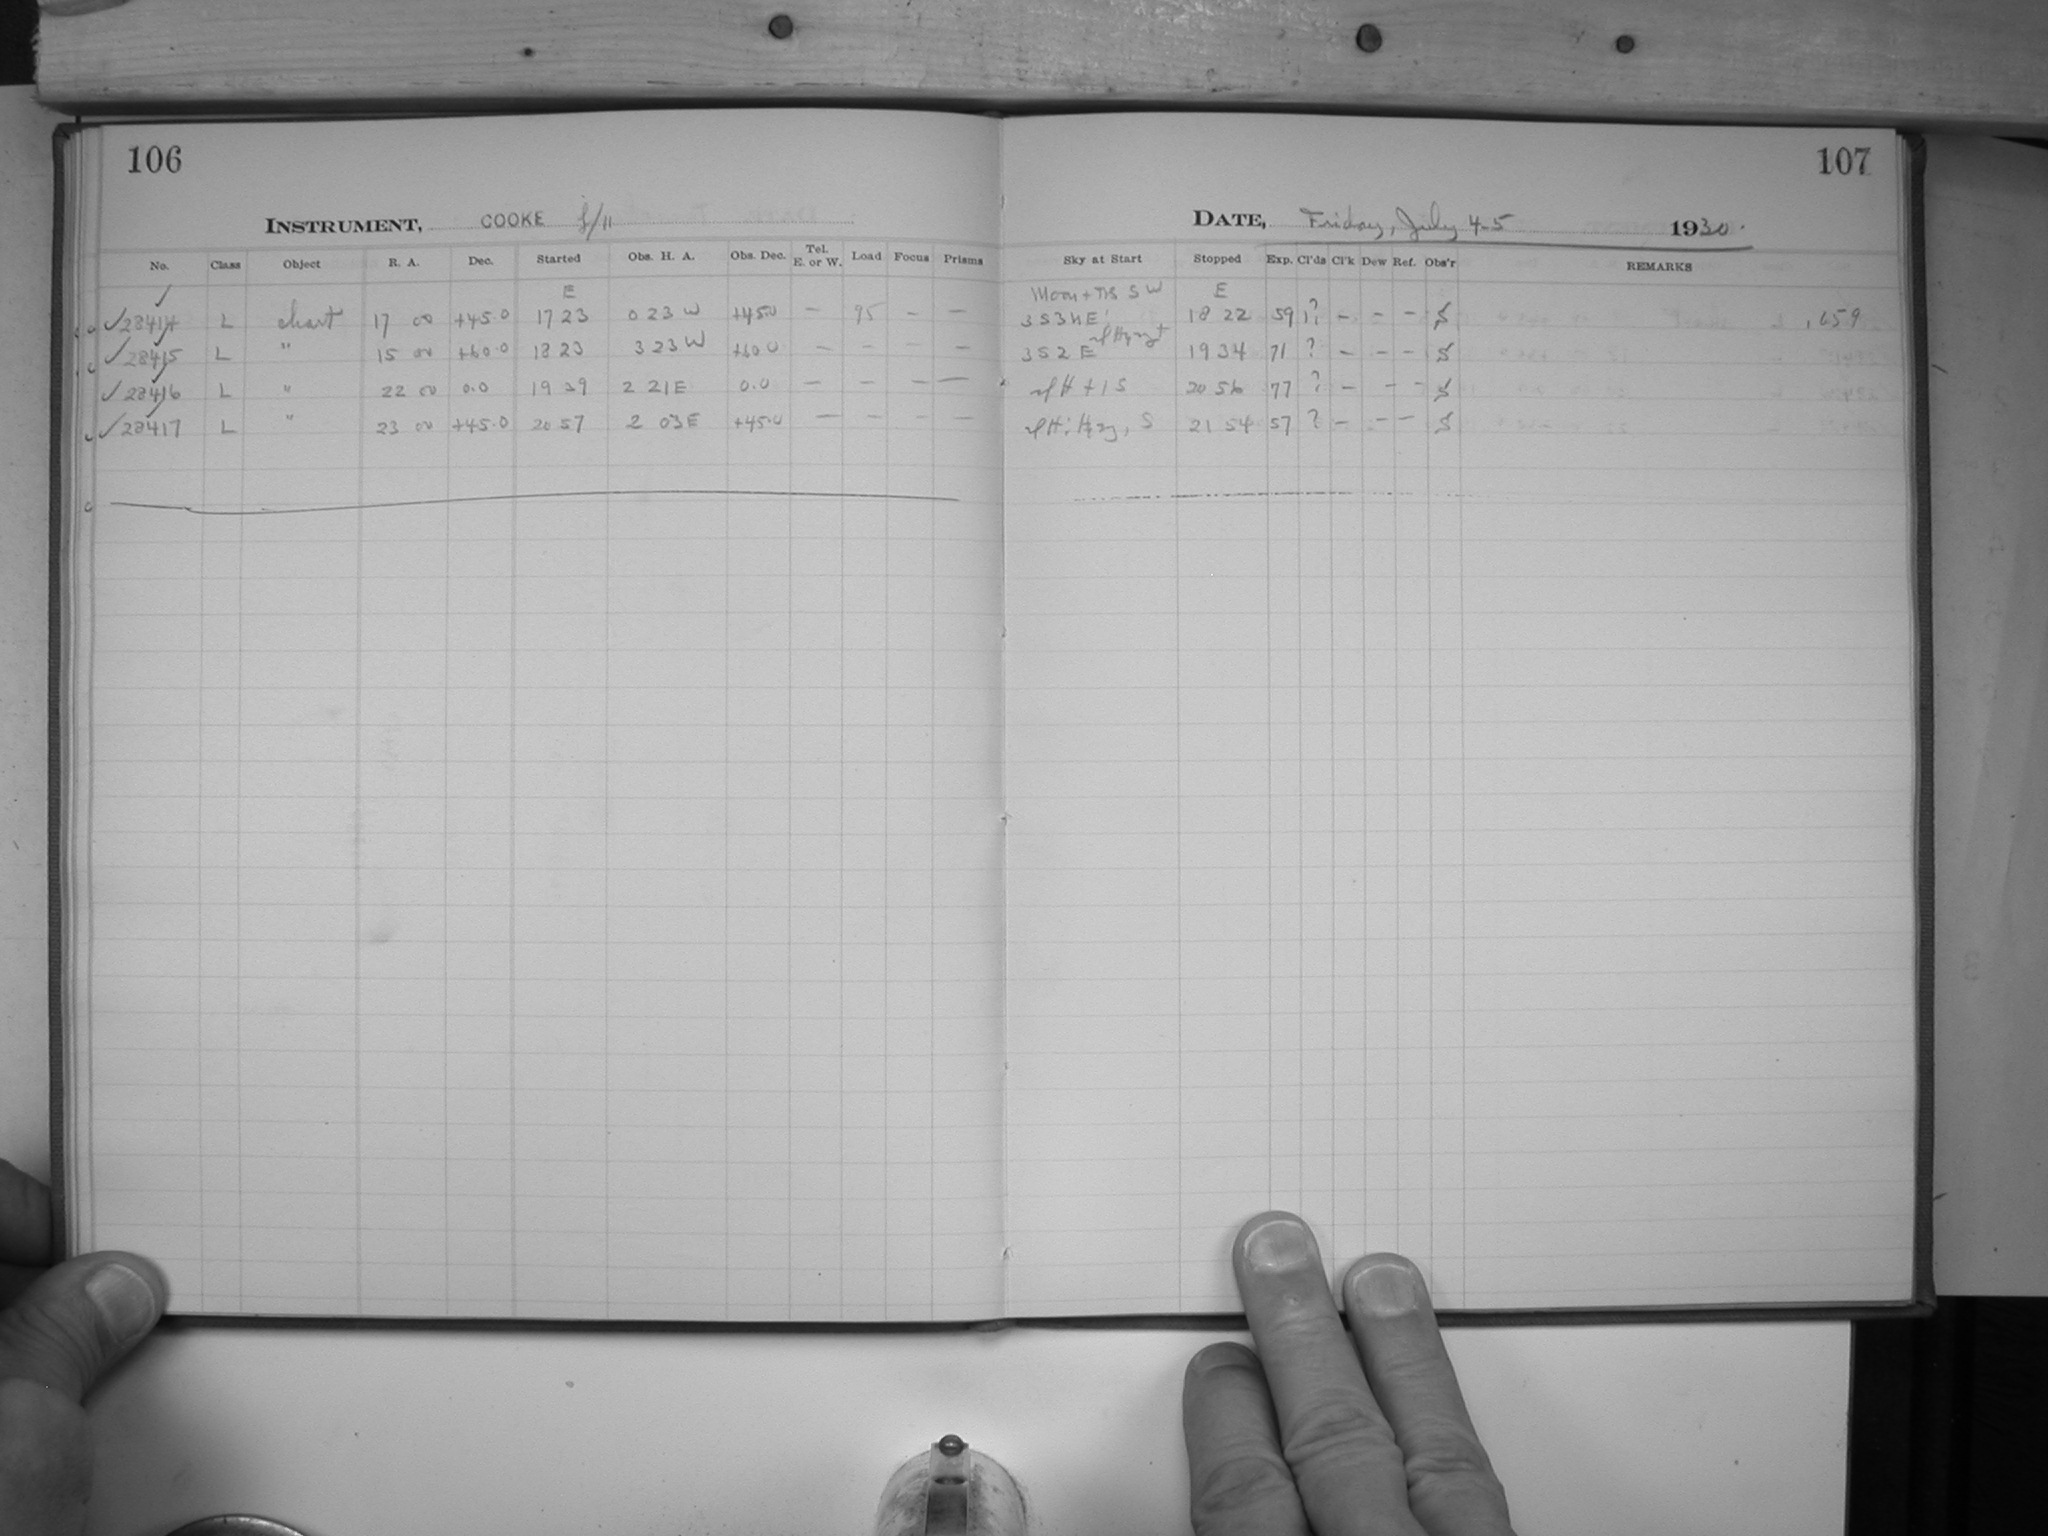 106
INSTRUMENT, COOKE f/11
No. Class Object R. A. Dec. Started Obs. H. A. Obs. Dec. Tel. E. or W. Load Focus Prisms
E
✓28414 L chart 17 00 +45.0 17 23 0 23 W +45.0 — 95 — —
✓28415 L " 15 00 +60.0 18 23 3 23 W +60.0 — — — —
✓28416 L " 22 00 0.0 19 39 2 21 E 0.0 — — — —
✓28417 L " 23 00 +45.0 20 57 2 03 E +45.0 — — — —
107
DATE, Friday, July 4-5 1930.
Sky at Start Stopped Exp. Cl'ds Cl'k Dew Ref. Obs'r REMARKS
Moon + S W E
18 22 59 ? — — — .659
3 S 2 E 19 34 71 ? — — —
+ 1 S 20 56 77 ? — — —
Hazy, S 21 54 57 ? — — —